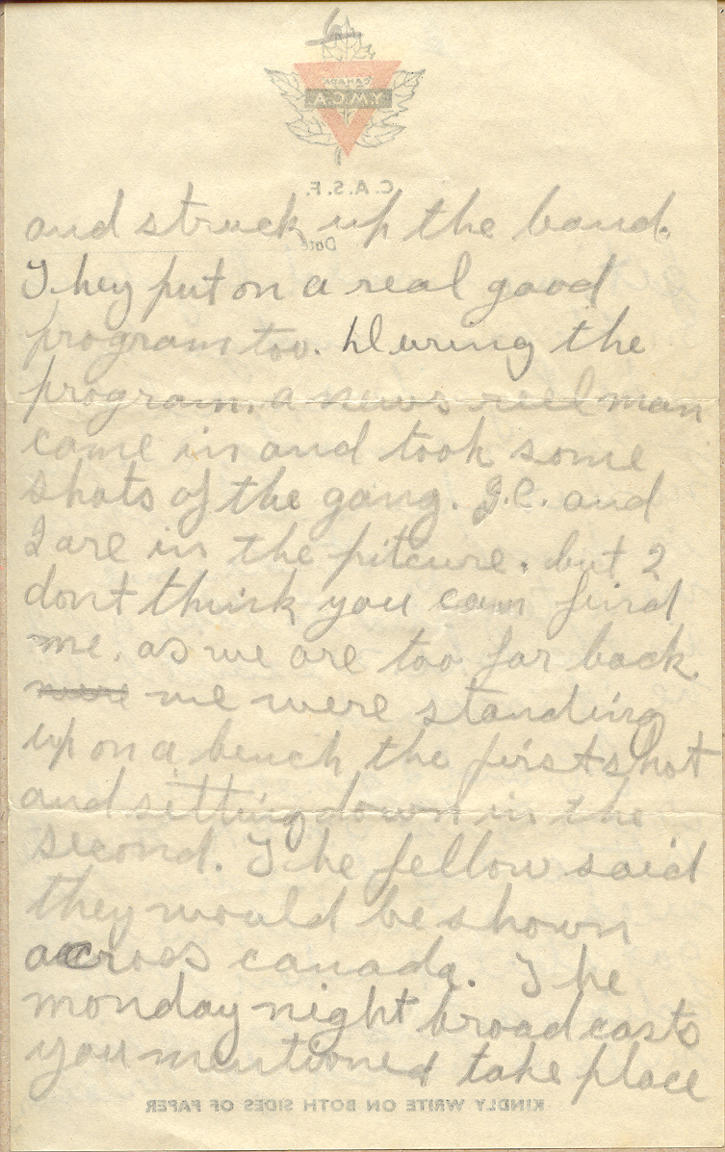 6
CANADA
Y.M.C.A.
C.A.S.F.
Date
and struck up the band.
They put on a real good
program too. During the
program, a news reel man
came in and took some
shots of the gang. J.C. and
I are in the pitcure. but I
dont think you can find
me. as we are too far back.
we were standing
up on a bench the first shot
and sitting down in the
second. The fellow said
they would be shown
across canada. The
monday night broadcasts
you mentioned take place
KINDLY WRITE ON BOTH SIDES OF PAPER